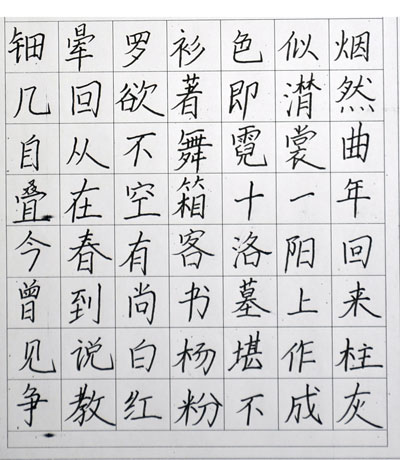 钿晕罗衫色似烟
几回欲著即潸然
自从不舞霓裳曲
叠在空箱十一年
今春有客洛阳回
曾到尚书墓上来
见说白杨堪作柱
争教红粉不成灰